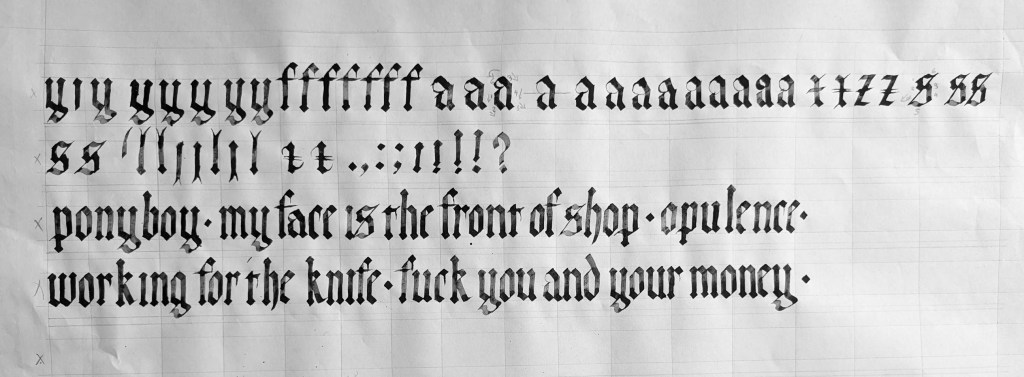 yıy yyy yyfffffff aaa a aaaaaaaaa xxzz s ss
ss
., : ; ı ! ! ! ?
ponyboy · my face is the front of shop · opulence ·
working for the knife · fuck you and your money ·